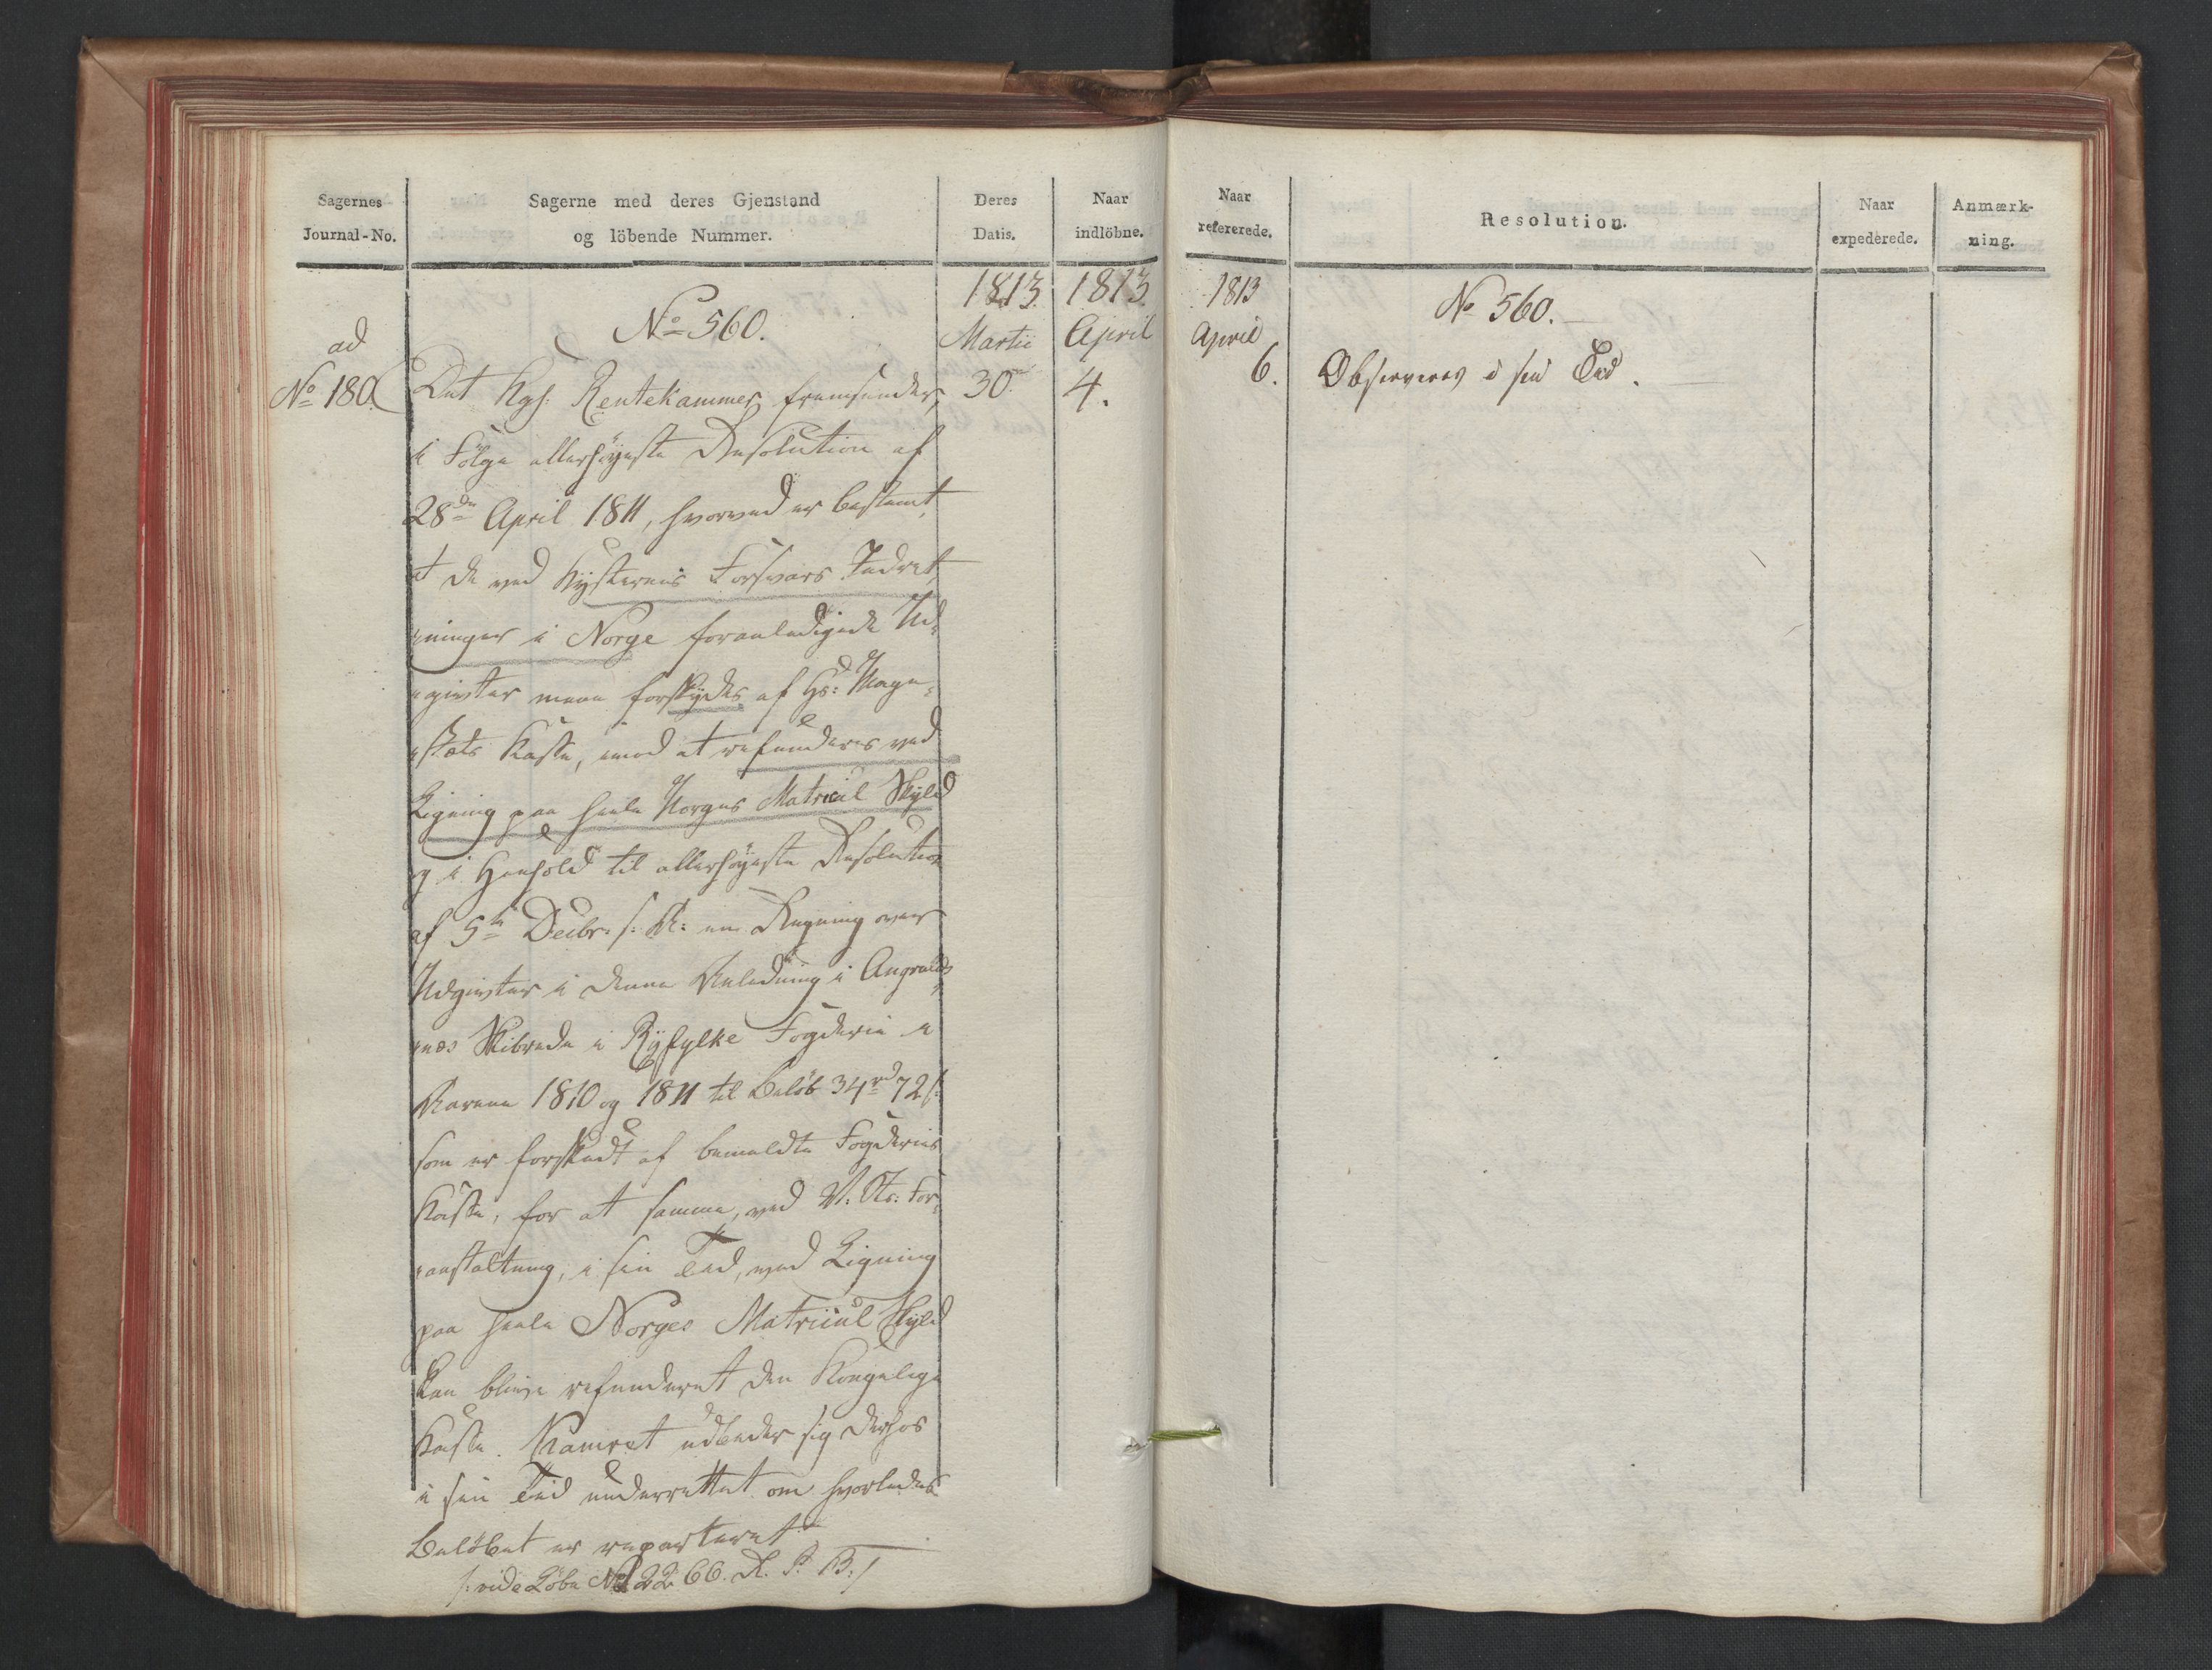 Sagernes
Journal-No.
Sagerne med deres Gjenstand
og löbende Nummer.
Deres
Datis.
Naar
indlöbne.
ad
No 180
No 560.
1813.
Martii
30
1813.
April
4.
Det Kgl: Rentekammer fremsender,
i Følge allerhøyeste Resolution af
28de April 1811, hvorved er bestemt,
at de ved Kysternes Forsvars Indret-
ninger i Norge foranledigede Ud-
givter maae forskydes af Hs: Maje-
stæts Kasse, imod at refunderes ved
Ligning paa heele Norges Matricul Skyld
og i Henhold til allerhøyeste Resolution
af 5te Decbr: f: A: en Regning over
Udgivter i denne Anledning i Augvalds-
næs Skibrede i Ryfylke Fogderie i
Aarene 1810 og 1811 til Beløb 34rd 72 s:
som er forskudt af bemeldte Fogderies
Kasse, for at samme, ved V. St: For-
anstaltning, i sin Tid, ved Ligning
paa heele Norges Matricul Skyld
kan blive refunderet den Kongelige
Kasse. Kamret udbeder sig derhos
i sin Tid underrettet om hvorledes
Beløbet er reparteret
/: vide Löbe No 2266. R. P. B:/
Naar
refererede.
Resolution.
Naar
expederede.
Anmærk-
ning.
1813
April
6.
No 560.
Observeres i sin Tid.